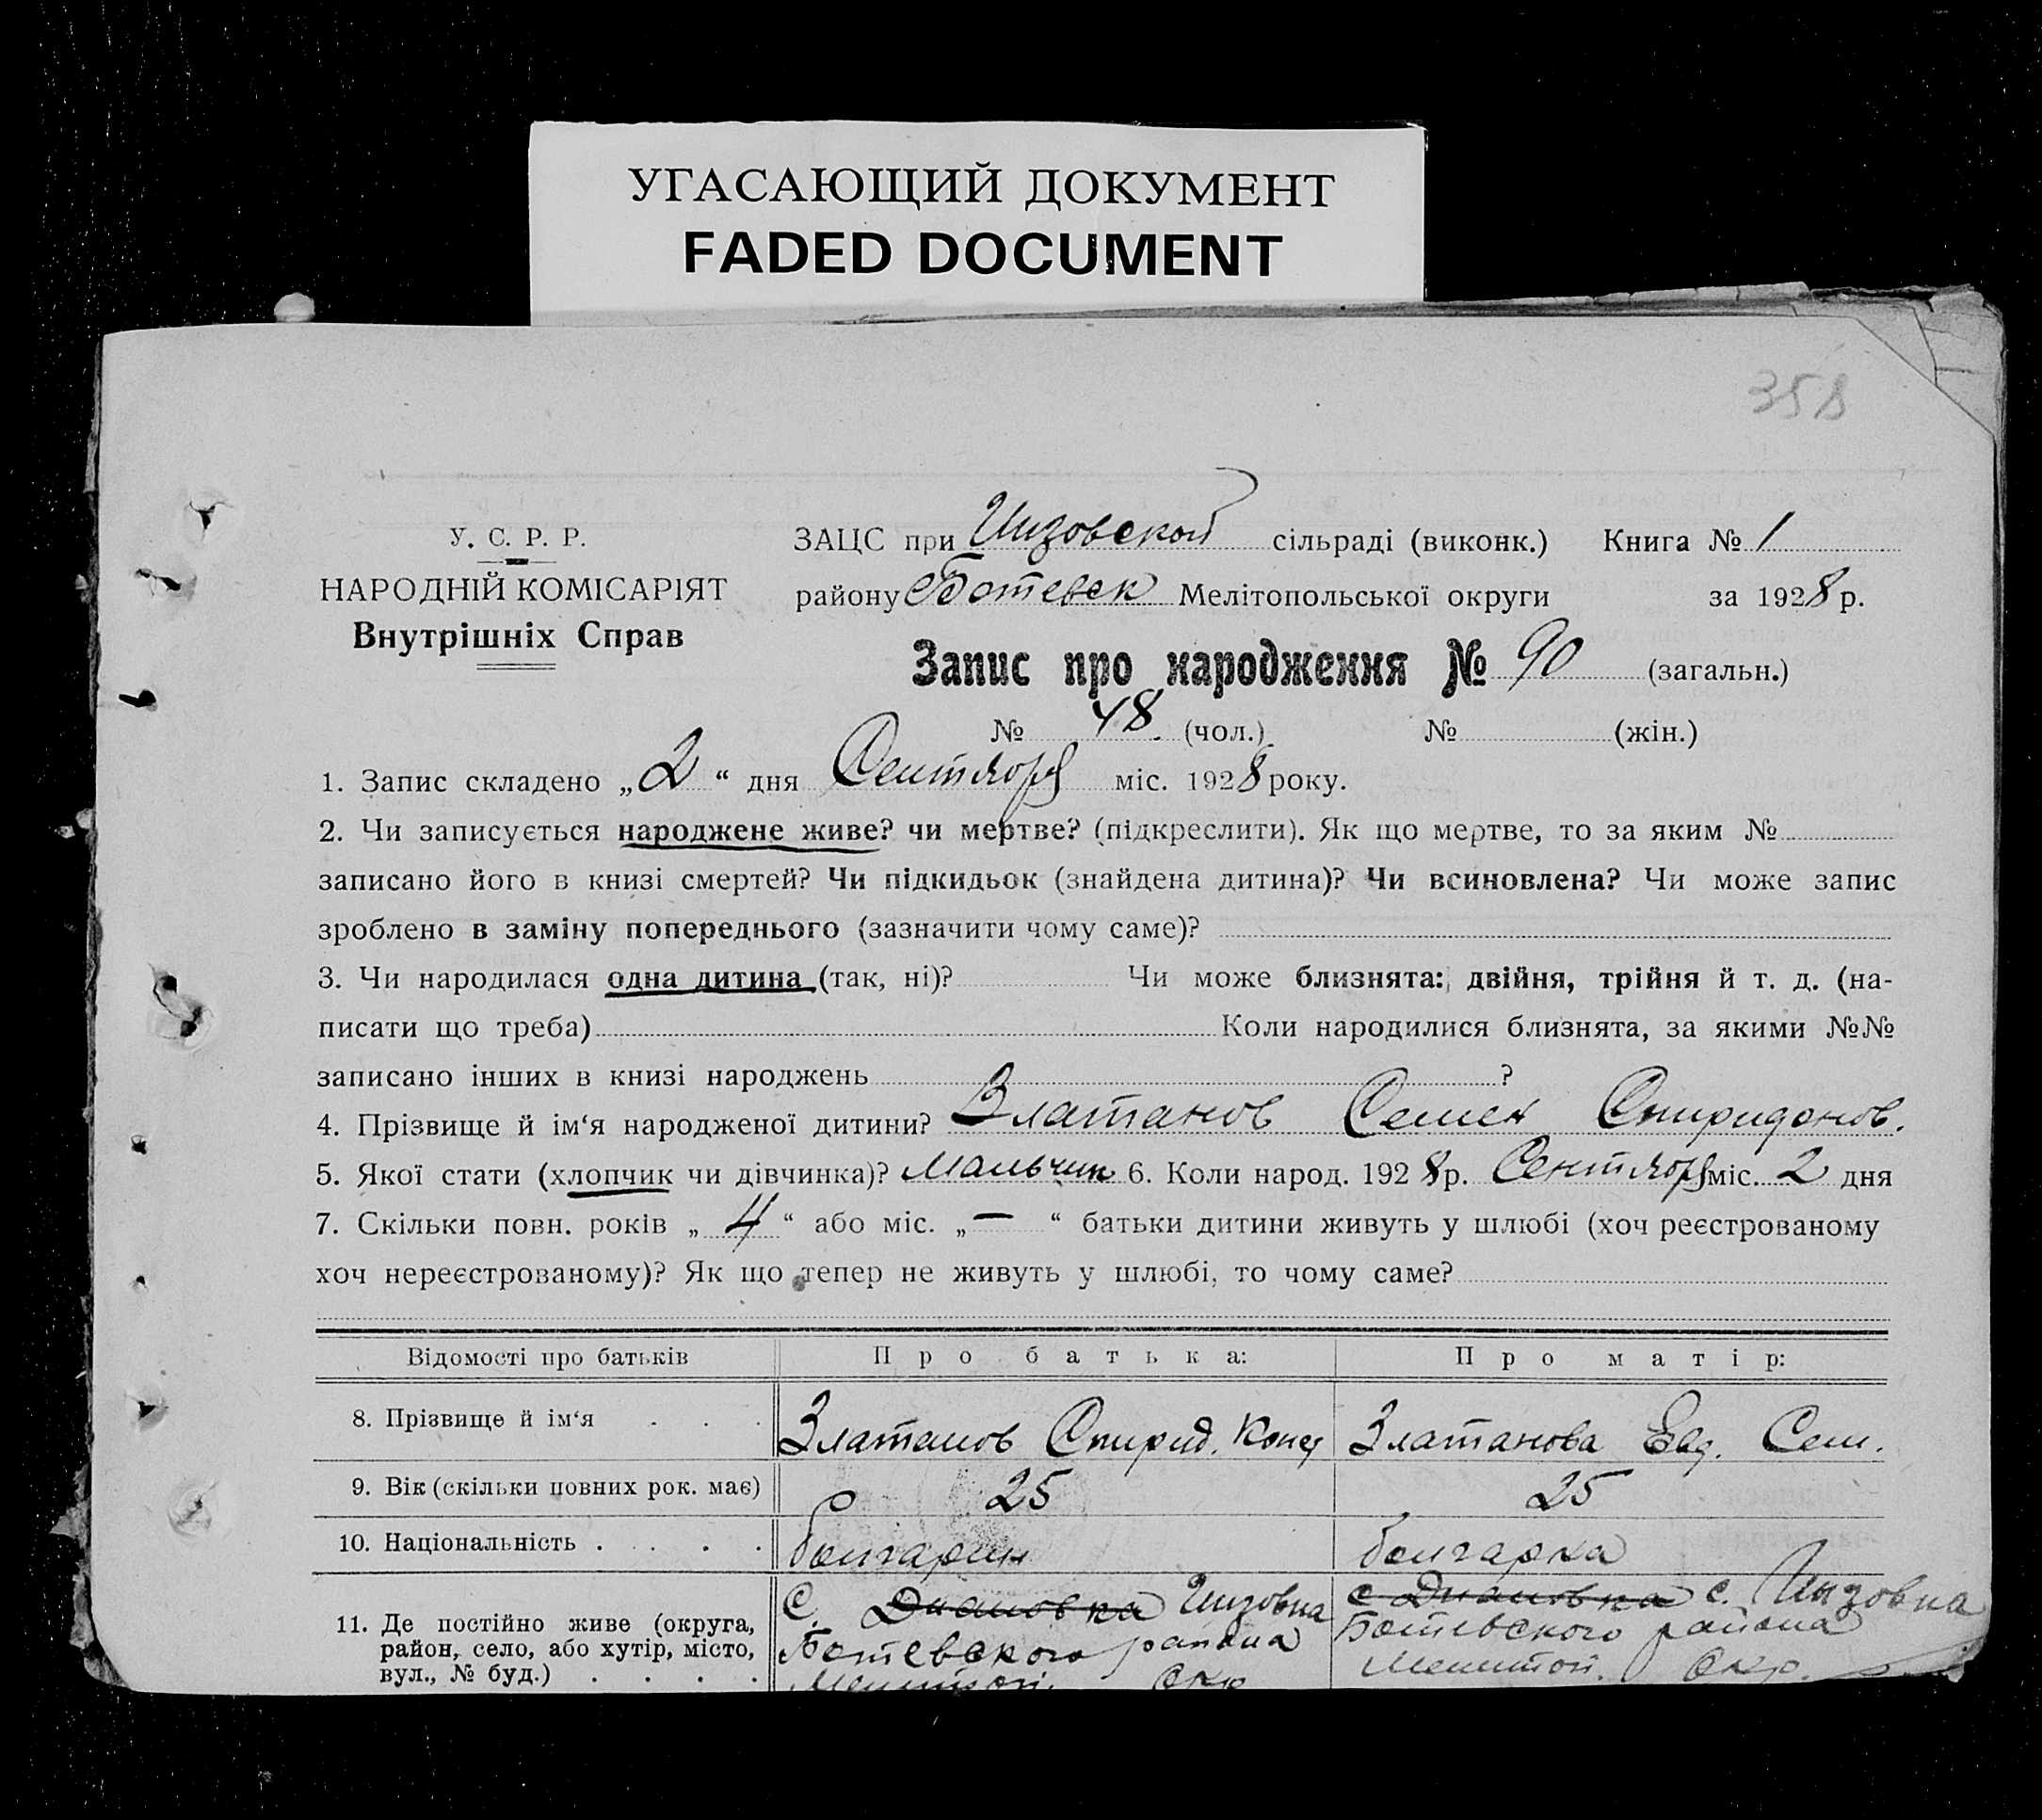 УГАСАЮЩИЙ ДОКУМЕНТ
FADED DOCUMENT
358
У. С. Р. Р.
НАРОДНІЙ КОМІСАРІЯТ
Внутрішніх Справ
ЗАЦС при Инзовской сільраді (виконк.) Книга № 1
району Ботевск Мелітопольської округи за 1928 р.
Запис про народження № 90 (загальн.)
№ 48 (чол.) № (жін.)
1. Запис складено „2“ дня Сентября міс. 1928 року.
2. Чи записується народжене живе? чи мертве? (підкреслити). Як що мертве, то за яким №
записано його в книзі смертей? Чи підкидьок (знайдена дитина)? Чи всиновлена? Чи може запис
зроблено в заміну попереднього (зазначити чому саме)?
3. Чи народилася одна дитина (так, ні)? Чи може близнята: двійня, трійня й т. д. (на-
писати що треба) Коли народилися близнята, за якими №№
записано інших в книзі народжень ?
4. Прізвище й ім‘я народженої дитини? Златанов Семен Спиридонов.
5. Якої стати (хлопчик чи дівчинка)? Мальчик 6. Коли народ. 1928 р. Сентября міс. 2 дня
7. Скільки повн. років „4“ або міс. „—“ батьки дитини живуть у шлюбі (хоч реєстрованому
хоч нереєстрованому)? Як що тепер не живуть у шлюбі, то чому саме?
Відомості про батьків Про батька: Про матір:
8. Прізвище й ім‘я . . . Златанов Спирид. Конст Златанова Евд. Сем.
9. Вік (скільки повних рок. має) 25 25
10. Національність . . . . болгарин болгарка
11. Де постійно живе (округа, район, село, або хутір, місто, вул., № буд.) . . . .
С. Диановка Инзовка
Ботевского района
Мелитоп. Окр
с Диановка с. Инзовка
Ботевского района
Мелитоп. Окр.